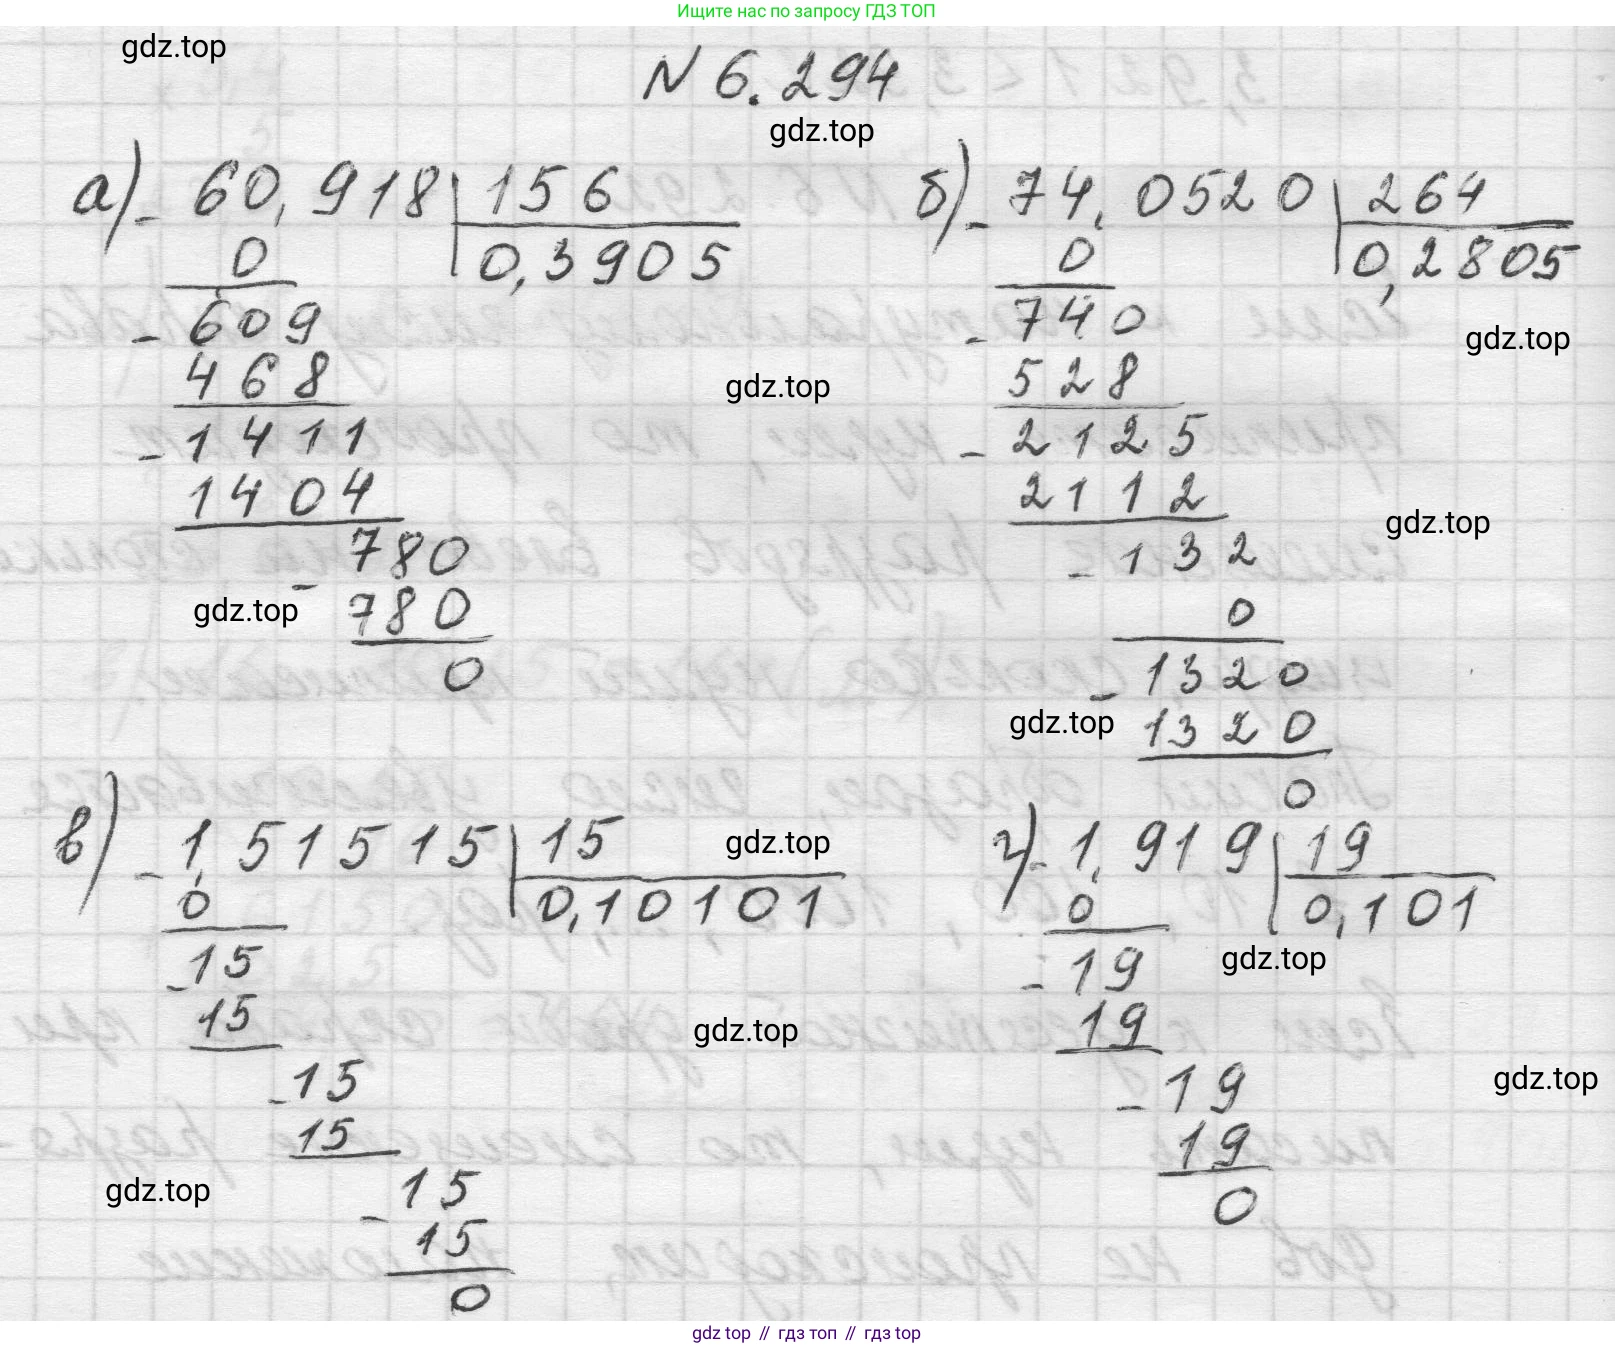 Ищите нас по запросу ГДЗ ТОП
gdz.top
N 6.294
gdz.top
а) - 60,918 | 156
0 | 0,3905
- 609
468
- 1411
1404
- 780
780
0
б) - 74,0520 | 264
0 | 0,2805
- 740
528
- 2125
2112
- 132
0
- 1320
1320
0
gdz.top
gdz.top
gdz.top
gdz.top
gdz.top
в) - 1,51515 | 15
0 | 0,10101
- 15
15
- 15
15
- 15
15
0
г) - 1,919 | 19
0 | 0,101
- 19
19
- 19
19
0
gdz.top
gdz.top
gdz.top
gdz.top
gdz.top
gdz top // гдз топ // гдз top